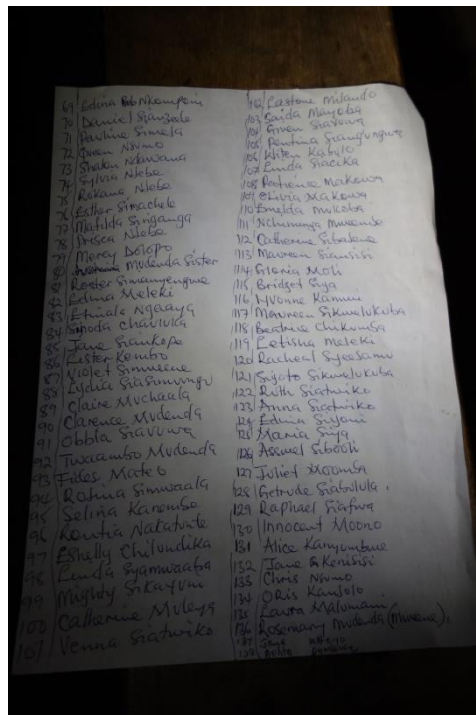 69 Edina Nkomponi
70 Daniel Sianzele
71 Pauline Simela
72 Queen Nsumo
73 Sharon Ndawana
74 Sylvia Ntebe
75 Roxana Ntebe
76 Esther Simachele
77 Matilda Siniganga
78 Prisca Ntebe
79 Mercy Dolopo
80 Mudenda Sister
81 Roster Simanyengwe
82 Edina Meleki
83 Ngaaya
84 Chaviuka
85 Jane Siankope
86 Lister Kembo
87 Violet Simweene
88 Lychia Siasimuungu
89 Claire Muchaala
90 Clarence Mudenda
91 Obbla Siavuwa
92 Twaambo Mudenda
93 Fides Mateo
94 Rosina Simwaala
95 Selina Kanembe
96 Nakatunte
97 Eshelly Chilundika
98 Linda Syamwaaba
99 Mighty Sikayuni
100 Catherine Muleya
101 Venna Siatwiko
102 Rastone Milando
103 Saida Mayoba
104 Given Siavuwa
105 Pentina Siangungwa
106 Witen Kabilo
107 Linda Siacika
108 Patronse Makowa
109 Olivia Makowa
110 Emelda Mukoba
111 Nchimunya Mweembe
112 Catherine Sibalena
113 Maureen Siansisi
114 Gloria Moli
115 Bridget Siya
116 Yvonne Kamuu
117 Maureen Sikwelukuba
118 Beatrice Chikumba
119 Letisha Meleki
120 Racheal Syeesamu
121 Siyoto Sikwelukuba
122 Ruth Siatwiko
123 Anna Siatwiko
124 Edina Siyoni
125 Maria Siya
126 Assmel Sibooli
127 Juliet Moomba
128 Getrude Siabulula.
129 Raphael Siafwa
130 Innocent Moono
131 Alice Kanyumbwe
132 Jane Kenisisi
133 Chris Nsumo
134 Oris Kambolo
135 Laura Malumani
136 Rosemary Mudenda (Mweene).
137 Jane
138